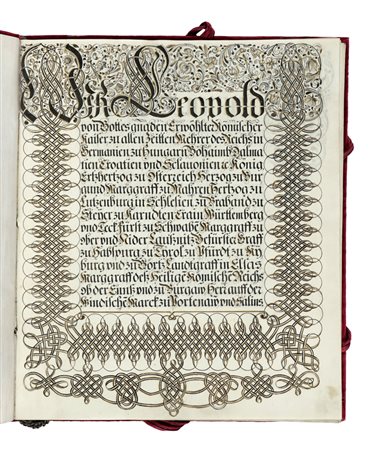 Wir Leopold
von Gottes gnaden Erwöhlter Römischer
Kaiser zu allen Zeitten Mehrer des Reichs in
Germanien zu Hungarn Böhaimb Dalma
tien Croatien und Sclavonien ec König
Ertzhertzog zu Osterreich Hertzog zu Bur
gund Marggraff zu Mähren Hertzog zu
Lutzenburg in Schlesien zu Braband zu
Steyer zu Karndten Crain Württemberg
und Teck fürst zu Schwabe Marggraff zu
ober und Nider Laußnitz Gefürster Graff
zu Habspurg zu Tyrol zu Pfürdt zu Ky
burg und zu Görtz Landtgraff in Elsas
Marggraff deß Heilige Römische Reichs
ob der Ennß und zu Burgaw Herr auff der
Windische Marck zu Portenaw und Salins